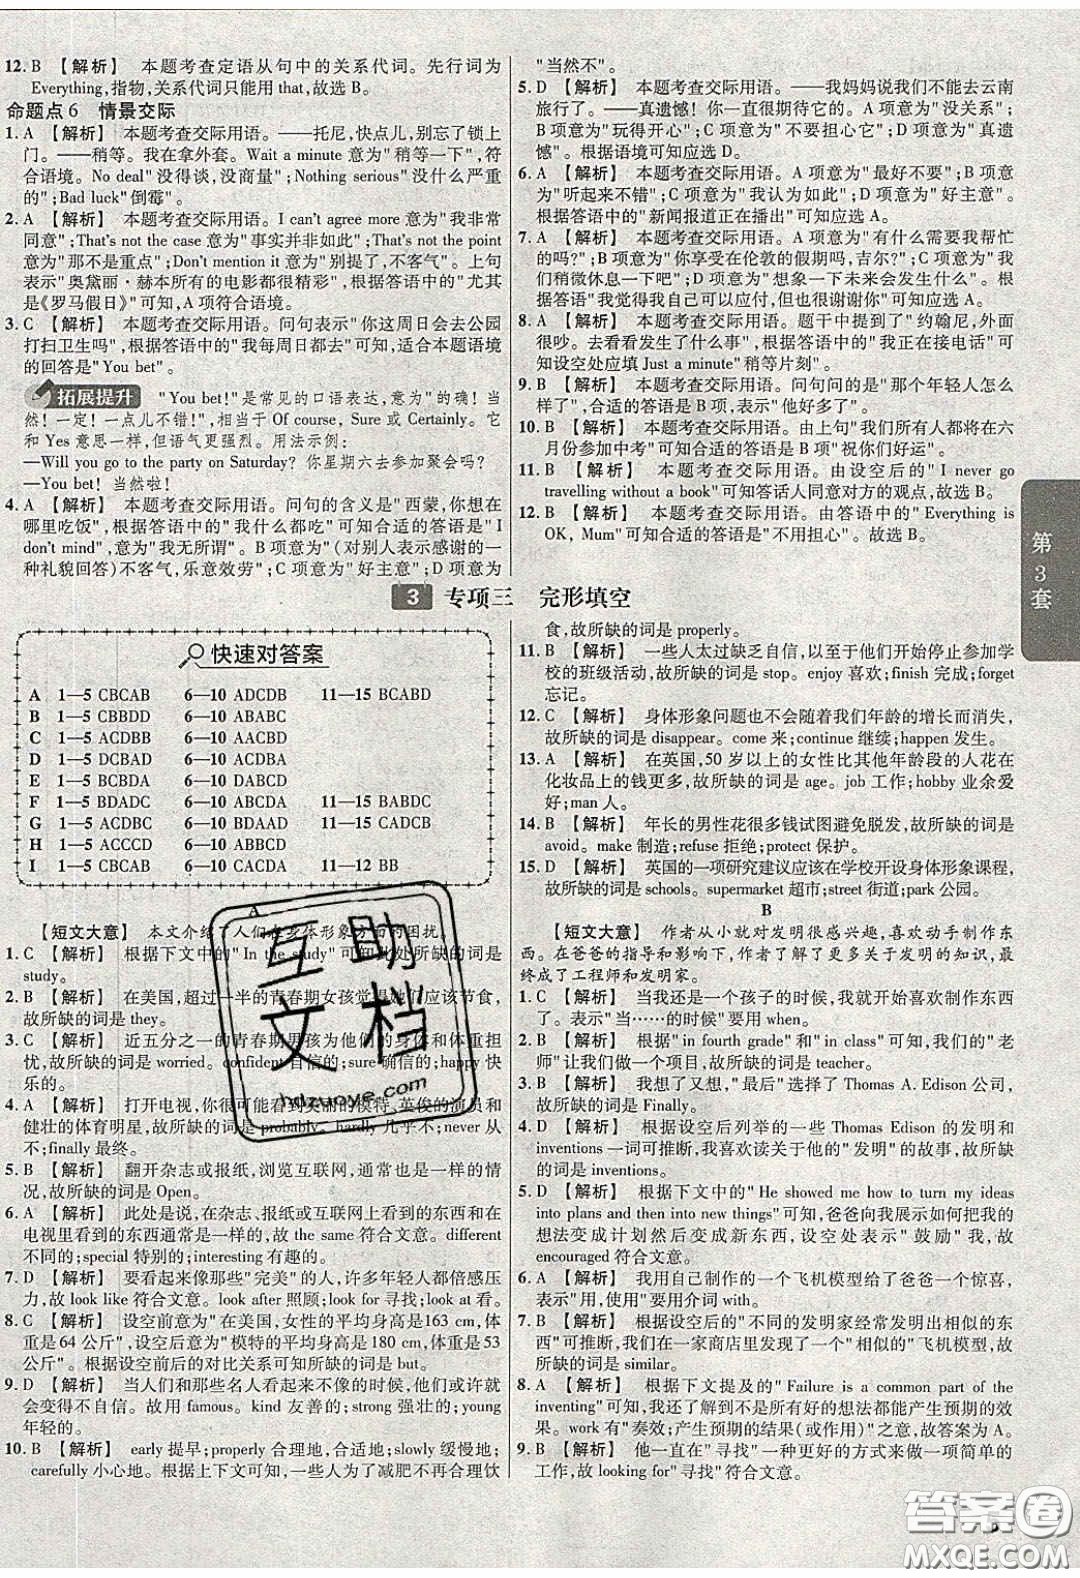 12. B 【解析】 本题考查定语从句中的关系代词。先行词为
Everything,指物,关系代词只能用 that,故选 B。
命题点6 情景交际
1. A 【解析】 本题考查交际用语。——托尼,快点儿,别忘了锁上
门。——稍等。我在拿外套。Wait a minute 意为"稍等一下",符
合语境。No deal"没得谈,没商量";Nothing serious"没什么严重
的";Bad luck"倒霉"。
2. A 【解析】 本题考查交际用语。I can't agree more 意为"我非常
同意";That's not the case 意为"事实并非如此";That's not the point
意为"那不是重点";Don't mention it 意为"别提了,不客气"。上句
表示"奥黛丽·赫本所有的电影都很精彩",根据答语中的"尤其
是《罗马假日》"可知,A 项符合语境。
3. C 【解析】 本题考查交际用语。问句表示"你这周日会去公园
打扫卫生吗",根据答语中的"我每周日都去"可知,适合本题语境
的回答是"You bet"。
拓展提升 "You bet!"是常见的口语表达,意为"的确!当
然!一定!一点儿不错!"相当于 Of course, Sure 或 Certainly。它
和 Yes 意思一样,但语气更强烈。用法示例:
—Will you go to the party on Saturday? 你星期六去参加聚会吗?
—You bet! 当然啦!
4. A 【解析】 本题考查交际用语。问句的含义是"西蒙,你想在
哪里吃饭",根据答语中的"我什么都吃"可知合适的答语是"I
don't mind",意为"我无所谓"。B 项意为"(对别人表示感谢的
一种礼貌回答)不客气,乐意效劳";C 项意为"好主意";D 项意为
"当然不"。
5. D 【解析】 本题考查交际用语。——我妈妈说我们不能去云南
旅行了。——真遗憾!你们很期待它的。A 项意为"没关系";
B 项意为"玩得开心";C 项意为"不要担心它";D 项意为"真遗
憾"。根据语境可知应选 D。
6. A 【解析】 本题考查交际用语。A 项意为"最好不要";B 项意
为"听起来不错";C 项意为"我认为如此";D 项意为"好主意"。
根据答语中的"新闻报道正在播出"可知应选 A。
7. A 【解析】 本题考查交际用语。A 项意为"有什么需要我帮忙
的吗?";B 项意为"你享受在伦敦的假期吗,吉尔?";C 项意为"我
们稍微休息一下吧";D 项意为"想象一下未来会发生什么"。根
据答语"我觉得我自己可以应付,但也很谢谢你"可知应选 A。
8. A 【解析】 本题考查交际用语。题干中提到了"约翰尼,外面
很吵。去看看发生了什么事",根据答语中的"我正在接电话"可
可知设空处应填 Just a minute"稍等片刻"。
9. B 【解析】 本题考查交际用语。问句问的是"那个年轻人怎么
样了",合适的答语是 B 项,表示"他好多了"。
10. B 【解析】 本题考查交际用语。由上句"我们所有人都将在六
月份参加中考"可知合适的答语是 B 项"祝你们好运"。
11. B 【解析】 本题考查交际用语。由设空后的"I never go
travelling without a book"可知答话人同意对方的观点,故选 B。
12. B 【解析】 本题考查交际用语。由答语中的"Everything is
OK, Mum"可知合适的答语是"不用担心"。故选 B。
第3套
3 专项三 完形填空
快速对答案
A 1—5 CBCAB 6—10 ADCDB 11—15 BCABD
B 1—5 CBBDD 6—10 ABABC
C 1—5 ACDBB 6—10 AACBD
D 1—5 DCBAD 6—10 ACDBA
E 1—5 BCBDA 6—10 DABCD
F 1—5 BDADC 6—10 ABCDA 11—15 BABDC
G 1—5 ACDBC 6—10 BDAAD 11—15 CADCB
H 1—5 ACCCD 6—10 ABBCD
I 1—5 CBCAB 6—10 CACDA 11—12 BB
A
【短文大意】 本文介绍了人们在身体形象方面的困扰。
1. C 【解析】 根据下文中的"In the study"可知此处所缺的词是
study。
2. B 【解析】 在美国,超过一半的青春期女孩觉得她们应该节食,
故所缺的词是 they。
3. C 【解析】 近五分之一的青春期男孩为他们的身体和体重担
忧,故所缺的词是 worried。confident 自信的;sure 确信的;happy 快
乐的。
4. A 【解析】 打开电视,你很可能看到美丽的模特,英俊的演员和
健壮的体育明星,故所缺的词是 probably。hardly 几乎不;never 从
不;finally 最终。
5. B 【解析】 翻开杂志或报纸,浏览互联网,通常也是一样的情
况,故所缺的词是 Open。
6. A 【解析】 此处是说,在杂志、报纸或互联网上看到的东西和在
电视里看到的东西通常是一样的,故 the same 符合文意。different
不同的;special 特别的;interesting 有趣的。
7. D 【解析】 要看起来像那些"完美"的人,许多年轻人都倍感压
力,故 look like 符合文意。look after 照顾;look for 寻找;look at 看。
8. C 【解析】 设空前意为"在美国,女性的平均身高是163 cm,体
重是64 公斤",设空后意为"模特的平均身高是 180 cm,体重是53
公斤"。根据设空前后的对比关系可知所缺的词是 but。
9. D 【解析】 当人们和那些名人看起来不像的时候,他们可能就
会变得不自信。故用 famous。kind 友善的;strong 强壮的;young
年轻的。
10. B 【解析】 early 提早;properly 合理地,合适地;slowly 缓慢地;
carefully 小心地。根据上下文可知,一些人为了减肥不再合理饮
食,故所缺的词是 properly。
11. B 【解析】 一些人太过缺乏自信,以至于他们开始停止参加学
校的班级活动,故所缺的词是 stop。enjoy 喜欢;finish 完成;forget
忘记。
12. C 【解析】 身体形象问题也不会随着我们年龄的增长而消失,
故所缺的词是 disappear。come 来;continue 继续;happen 发生。
13. A 【解析】 在英国,50 岁以上的女性比其他年龄段的人花在
化妆品上的钱更多,故所缺的词是 age。job 工作;hobby 业余爱
好;man 人。
14. B 【解析】 年长的男性花很多钱试图避免脱发,故所缺的词是
avoid。make 制造;refuse 拒绝;protect 保护。
15. D 【解析】 英国的一项研究建议应该在学校开设身体形象课程,
故所缺的词是 schools。supermarket 超市;street 街道;park 公园。
B
【短文大意】 作者从小就对发明很感兴趣,喜欢动手制作东
西。在爸爸的指导和影响下,作者了解了更多关于发明的知识,最
终成了工程师和发明家。
1. C 【解析】 当我还是一个孩子的时候,我就开始喜欢制作东西
了。表示"当……的时候"要用 when。
2. B 【解析】 根据"in fourth grade"和"in class"可知,我们的"老
师"让我们做一个项目,故所缺的词是 teacher。
3. B 【解析】 我想了又想,"最后"选择了 Thomas A. Edison 公司,
故所缺的词是 Finally。
4. D 【解析】 根据设空后列举的一些 Thomas Edison 的发明和
inventions 一词可推断,我喜欢读关于他的"发明"的故事,故所缺的
词是 inventions。
5. D 【解析】 根据下文中的"He showed me how to turn my ideas
into plans and then into new things"可知,这里应向我展示如何把我的
想法变成计划然后变成新东西,设空处表示"鼓励"我。故
encouraged 符合文意。
6. A 【解析】 我用自己制作的一个飞机模型给了爸爸一个惊喜,
表示"用,使用"要用介词 with。
7. B 【解析】 根据设空后的"不同的发明家经常发明出相似的东
西"可推断,我们在一家商店里发现了一个"相似的"飞机模型,故
所缺的词是 similar。
8. A 【解析】 根据下文提及的"Failure is a common part of the
inventing"可知,我还了解到不是所有好的想法都能产生预期的效
果。work 有"奏效;产生预期的结果(或作用)"之意,故答案为 A。
9. B 【解析】 他一直在"寻找"一种更好的方式来做一项简单的
工作,故 looking for"寻找"符合文意。
互助文档
hdzuoye.com
答案圈
MXQE.COM